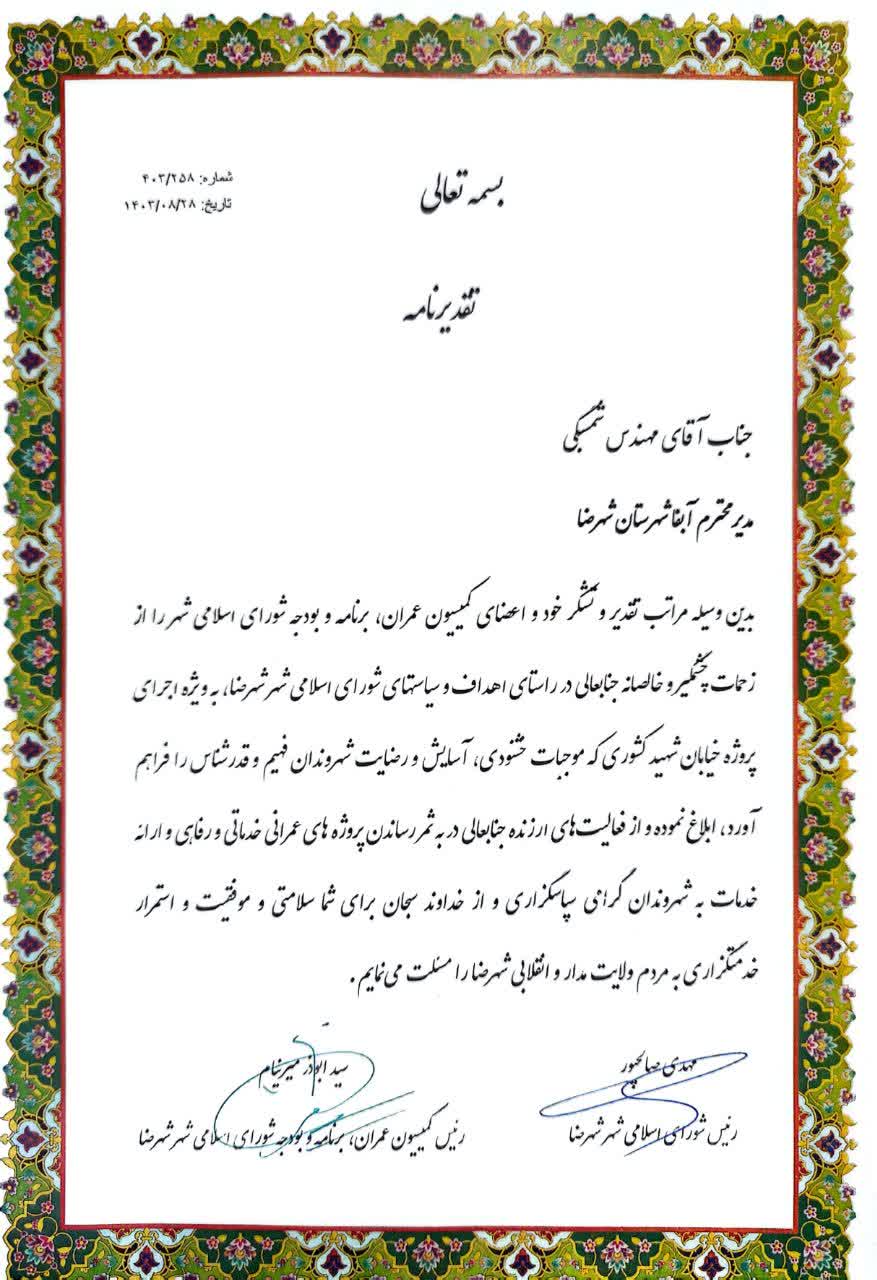 بسمه تعالی
شماره: ۴۰۳/۲۵۸
تاریخ: ۱۴۰۳/۰۸/۲۸
تقدیرنامه
جناب آقای مهندس شمسکی
مدیر محترم آبفا شهرستان شهرضا
بدین وسیله مراتب تقدیر و تشکر خود و اعضای کمیسیون عمران، برنامه و بودجه شورای اسلامی شهر را از
زحمات چشمگیر و خالصانه جنابعالی در راستای اهداف و سیاستهای شورای اسلامی شهر شهرضا، به ویژه اجرای
پروژه خیابان شهید کشوری که موجبات خشنودی، آسایش و رضایت شهروندان فهیم و قدرشناس را فراهم
آورد، ابلاغ نموده و از فعالیت‌های ارزنده جنابعالی در به ثمر رساندن پروژه های عمرانی خدماتی و رفاهی و ارائه
خدمات به شهروندان گرامی سپاسگزاری و از خداوند سبحان برای شما سلامتی و موفقیت و استمرار
خدمتگزاری به مردم ولایت مدار و انقلابی شهرضا را مسئلت می‌نمایم.
مهدی صالحپور
سید ابوذر میرنیام
رئیس شورای اسلامی شهر شهرضا
رئیس کمیسیون عمران، برنامه و بودجه شورای اسلامی شهر شهرضا